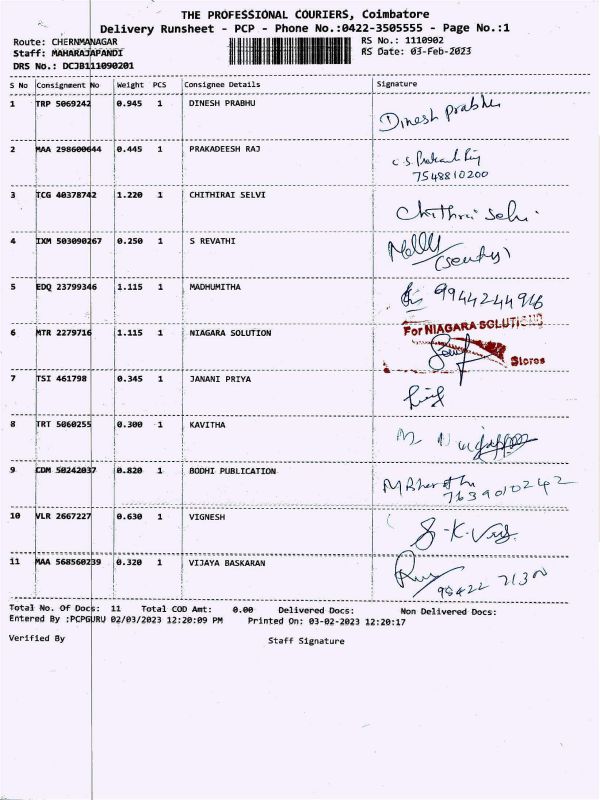 THE PROFESSIONAL COURIERS, Coimbatore
Delivery Runsheet - PCP - Phone No.:0422-3505555 - Page No.:1
Route: CHERNMANAGAR
Staff: MAHARAJAPANDI
DRS No.: DCJB111090201
RS No.: 1110902
RS Date: 03-Feb-2023
S No Consignment No Weight PCS Consignee Details Signature
1 TRP 5069242 0.945 1 DINESH PRABHU Dinesh prabhu
2 MAA 298600644 0.445 1 PRAKADEESH RAJ
7548810200
3 TCG 40378742 1.220 1 CHITHIRAI SELVI Chithrai selvi.
4 IXM 503090267 0.250 1 S REVATHI
5 EDQ 23799346 1.115 1 MADHUMITHA 9944244916
6 MTR 2279716 1.115 1 NIAGARA SOLUTION For NIAGARA SOLUTIONS
Stores
7 TSI 461798 0.345 1 JANANI PRIYA
8 TRT 5060255 0.300 1 KAVITHA
9 CDM 50242037 0.820 1 BODHI PUBLICATION
7639010242
10 VLR 2667227 0.630 1 VIGNESH
11 MAA 568560239 0.320 1 VIJAYA BASKARAN
98422 71300
Total No. Of Docs: 11 Total COD Amt: 0.00 Delivered Docs: Non Delivered Docs:
Entered By :PCPGURU 02/03/2023 12:20:09 PM Printed On: 03-02-2023 12:20:17
Verified By Staff Signature